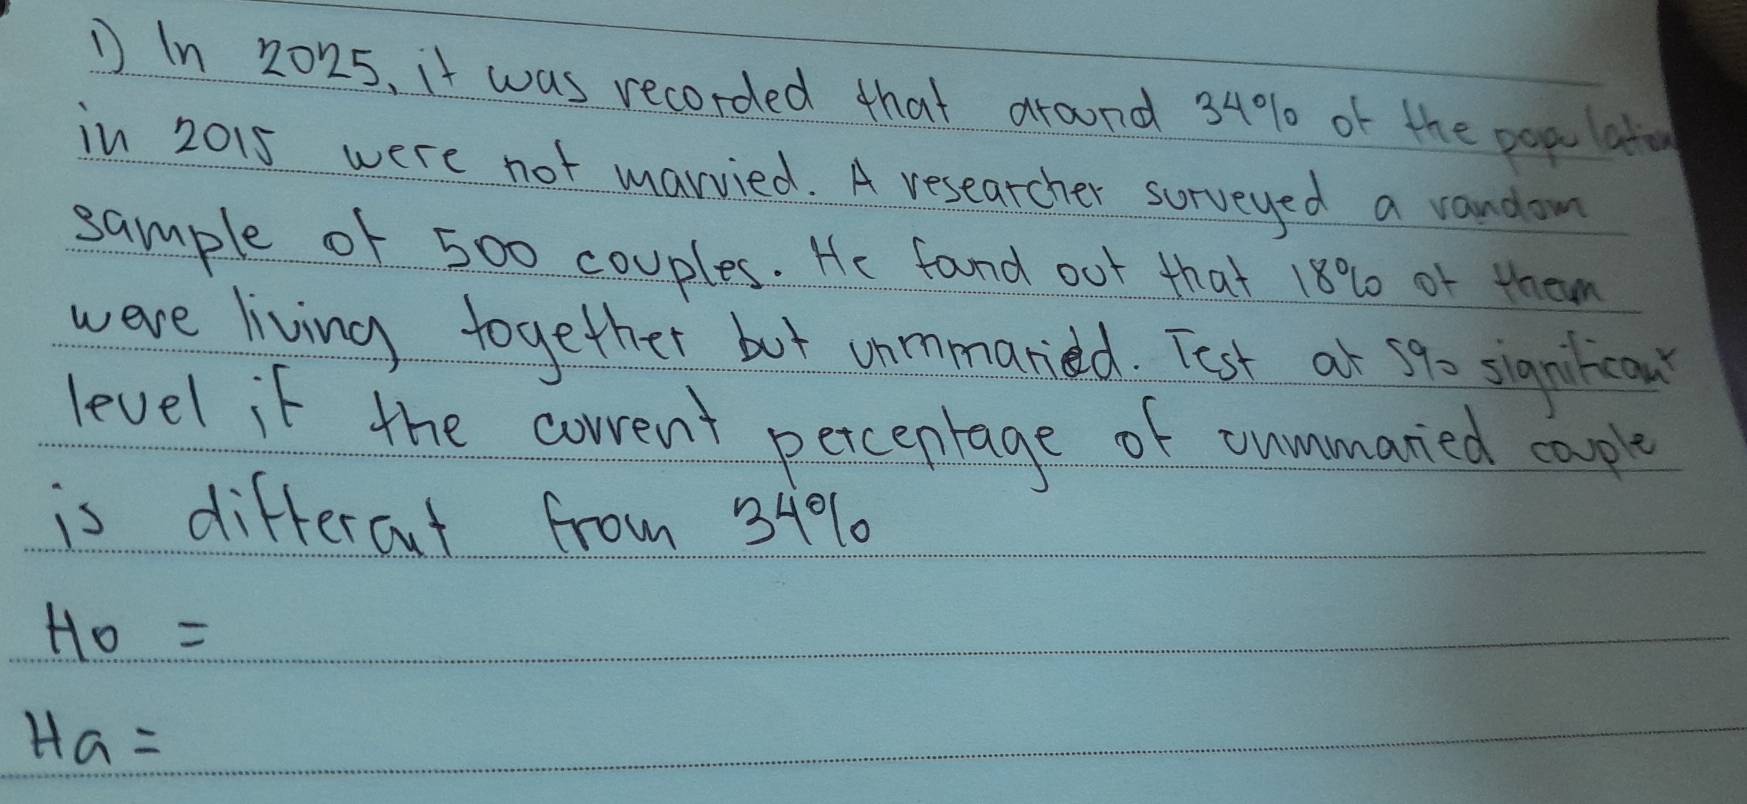 1) In 2025, it was recorded that around 34% of the population
in 2015 were not married. A researcher surveyed a random
sample of 500 couples. He fand out that 18% of them
were living together but unmmaried. Test at 5% significant
level if the current percentage of unmmaried couple
is different from 34%
Ho =
Ha =